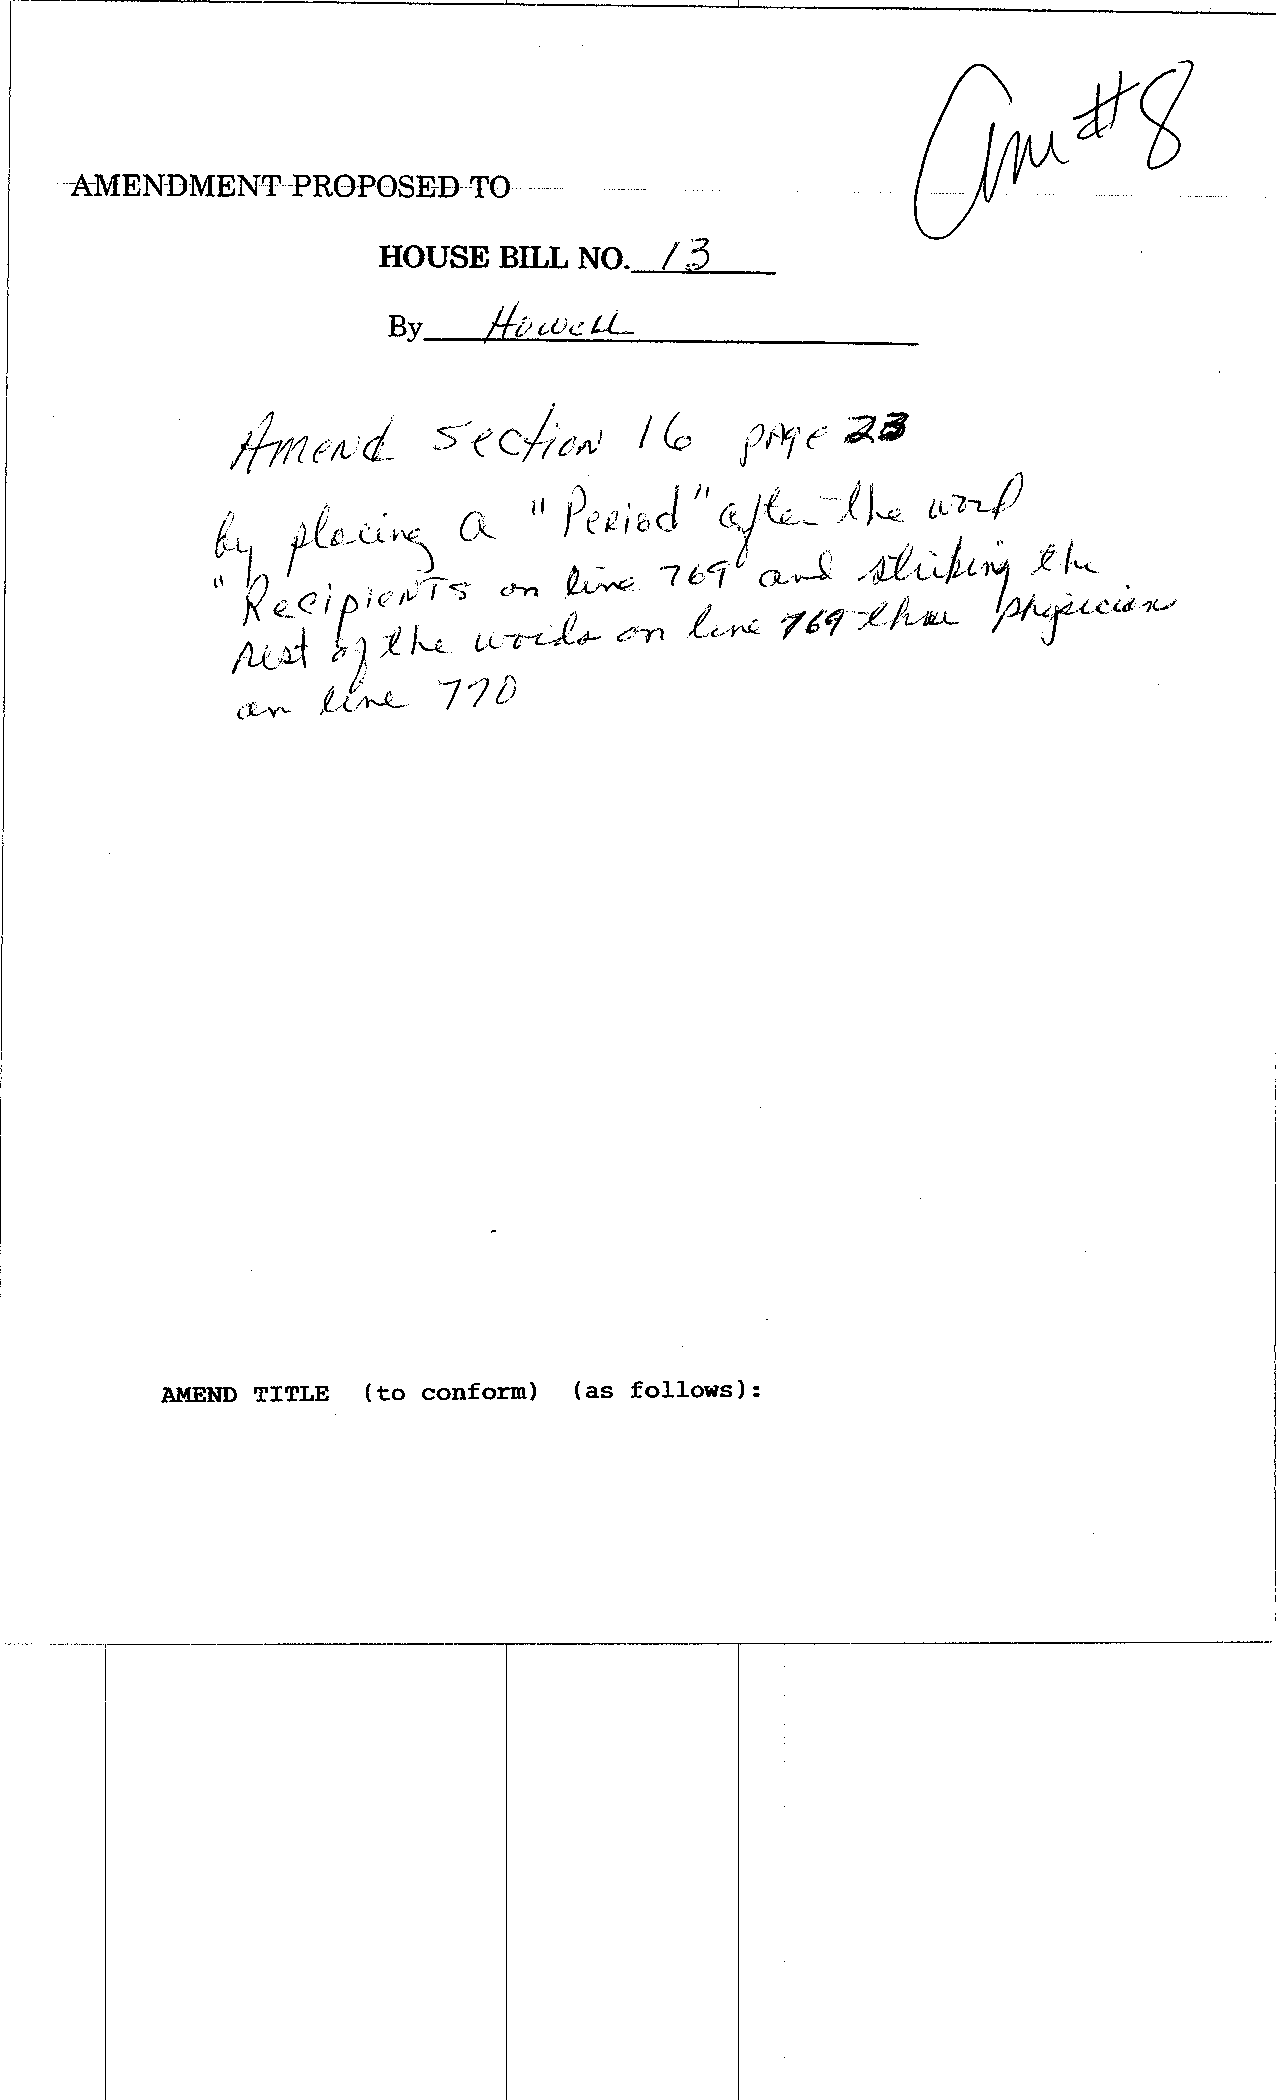 Am #8
AMENDMENT PROPOSED TO
HOUSE BILL NO. 13
By Howell
Amend Section 16 page 23
by placing a "Period" after the word
"Recipients on line 769 and striking the
rest of the words on line 769 thru physician
on line 770
AMEND TITLE (to conform) (as follows):